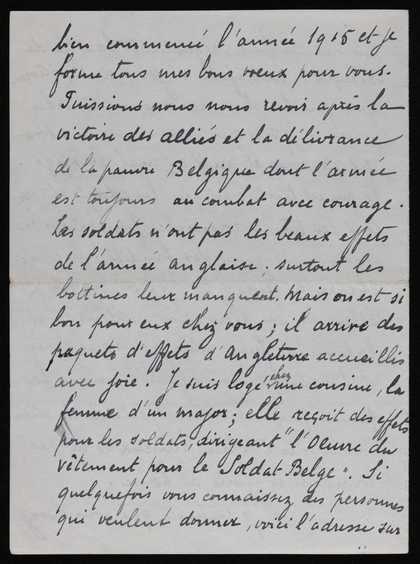 bien commencé l'année 1915 et je
forme tous mes bons vœux pour vous.
Puissions nous nous revoir après la
victoire des alliés et la délivrance
de la pauvre Belgique dont l'armée
est toujours au combat avec courage.
Les soldats n'ont pas les beaux effets
de l'armée anglaise; surtout les
bottines leur manquent. Mais on est si
bon pour eux chez vous; il arrive des
paquets d'effets d'Angleterre accueillis
avec joie. Je suis logé chez une cousine, la
femme d'un major; elle reçoit des effets
pour les soldats, dirigeant "l'Oeuvre du
vêtement pour le Soldat Belge". Si
quelquefois vous connaissez des personnes
qui veulent donner, voici l'adresse sur